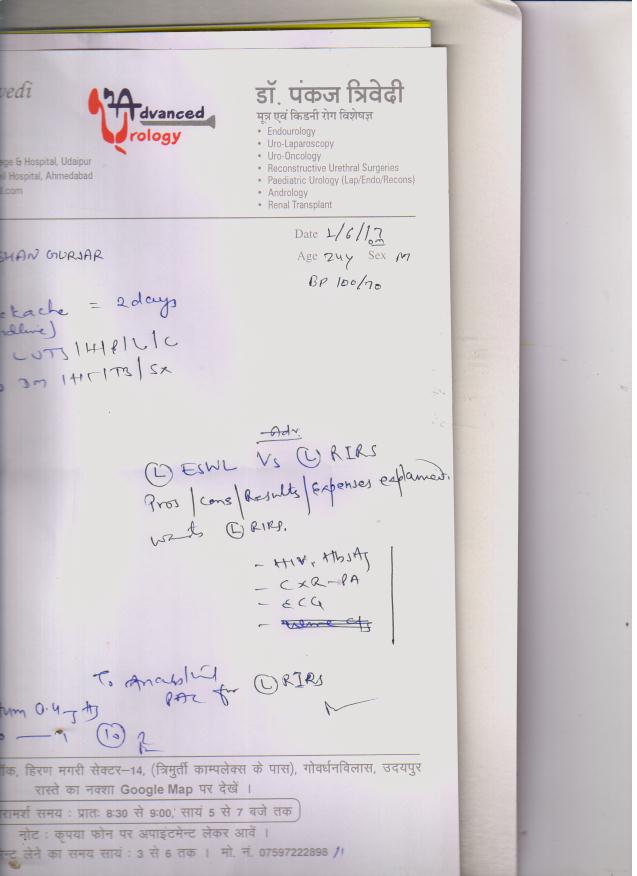 vedi
Advanced
Urology
डॉ. पंकज त्रिवेदी
मूत्र एवं किडनी रोग विशेषज्ञ
• Endourology
• Uro-Laparoscopy
• Uro-Oncology
• Reconstructive Urethral Surgeries
• Paediatric Urology (Lap/Endo/Recons)
• Andrology
• Renal Transplant
ege & Hospital, Udaipur
il Hospital, Ahmedabad
l.com
Date 1/6/17
SHAN GURJAR
Age 24y Sex M
BP 100/70
ckache = 2days
LUTS/H/F/L/C
DM/HT/TB/Sx
Adv.
(L) ESWL Vs (L) RIRS
Pros/Cons/Results/Expenses explained.
wants (L) RIRS.
- HIV, HbsAg
- CxR-PA
- ECG
To
PAC for (L) RIRS
0.4
10
ॉक, हिरण मगरी सेक्टर-14, (त्रिमुर्ती काम्पलेक्स के पास), गोवर्धनविलास, उदयपुर
रास्ते का नक्शा Google Map पर देखें ।
रामर्श समय : प्रातः 8:30 से 9:00, सायं 5 से 7 बजे तक
नोट : कृपया फोन पर अपाइंटमेन्ट लेकर आवें ।
न्ट लेने का समय सायं : 3 से 6 तक । मो. नं. 07597222898